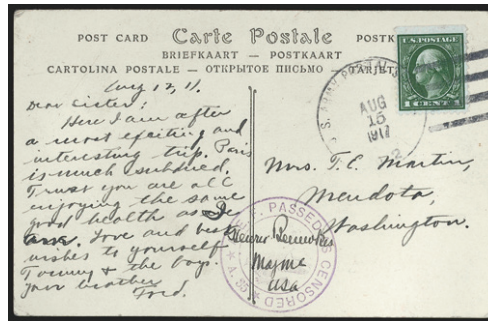 POST CARD Carte Postale POSTK
BRIEFKAART — POSTKAART
CARTOLINA POSTALE — ОТКРЫТОЕ ПИСЬМО — TARJET
U.S. POSTAGE
1 CENT 1
U.S. ARMY POSTAL
AUG
15
1917
Aug 12, 17.
Dear Sister:
Here I am after
a most exciting and
interesting trip. Paris
is much subdued.
Trust you are all
enjoying the same
good health as I
am. Love and best
wishes to yourself
Tommy & the boys.
Your brother
Fred.
Mrs. T. C. Martin,
Mendota,
Washington.
PASSED AS CENSORED
A.
Major
USA